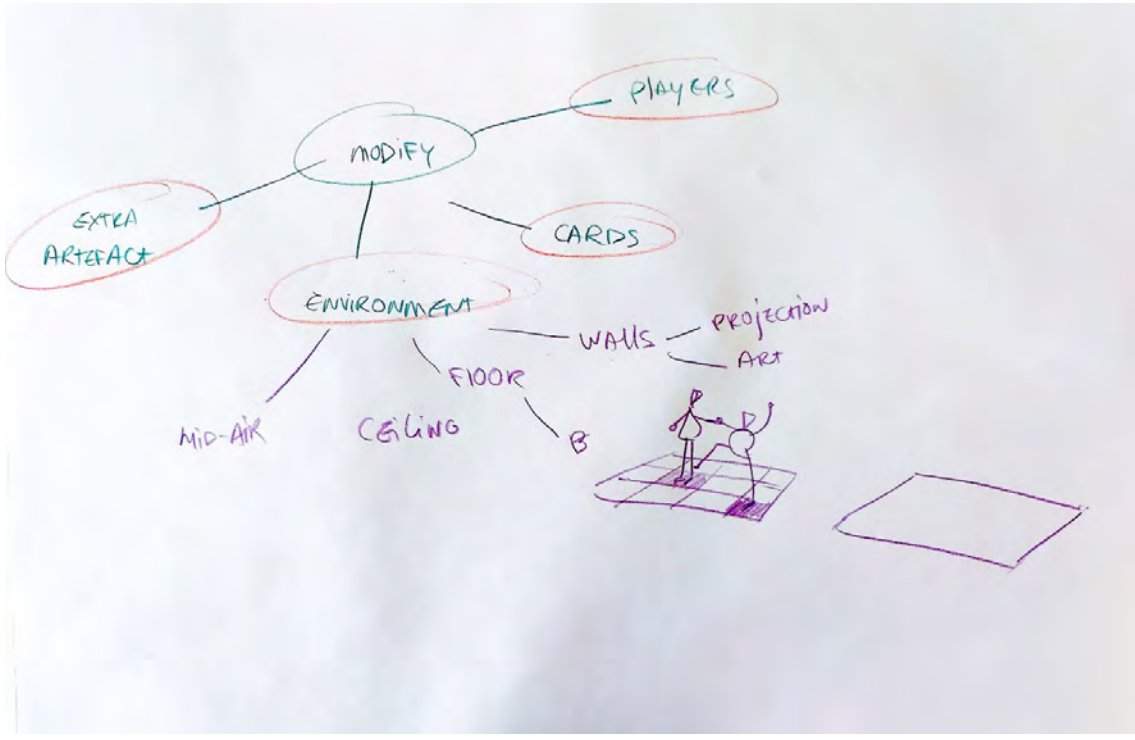 PlAYERS
MODiFY
EXTRA
ARTEFACT
CARDS
ENViRONMENT
WAllS
PROjECTION
ART
FlOOR
MiD-AiR
CEiLiNG
B